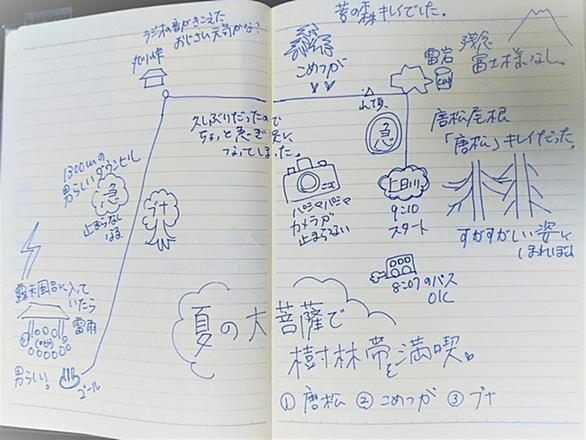 ラジオの音がきこえた
おじさい元気かな?
丸川峠
久しぶりだったので
ちょっと急ぎ足に
なってしまった。
1300mの
男らしいダウンヒル
急
止まらなく
なる
ブナ
露天風呂に入って
いたら
雷雨
男らしい!
ゴール
苔の森キレイでした。
こめつが
山頂
雷岩
残念
富士様なし。
急
唐松尾根
「唐松」キレイだった。
パシャパシャ
カメラが
止まらない
上日川
9:10
スタート
すがすがしい姿に
ほれぼれ
8:07のバス
OK
夏の大菩薩で
樹林帯を満喫。
① 唐松 ② こめつが ③ ブナ